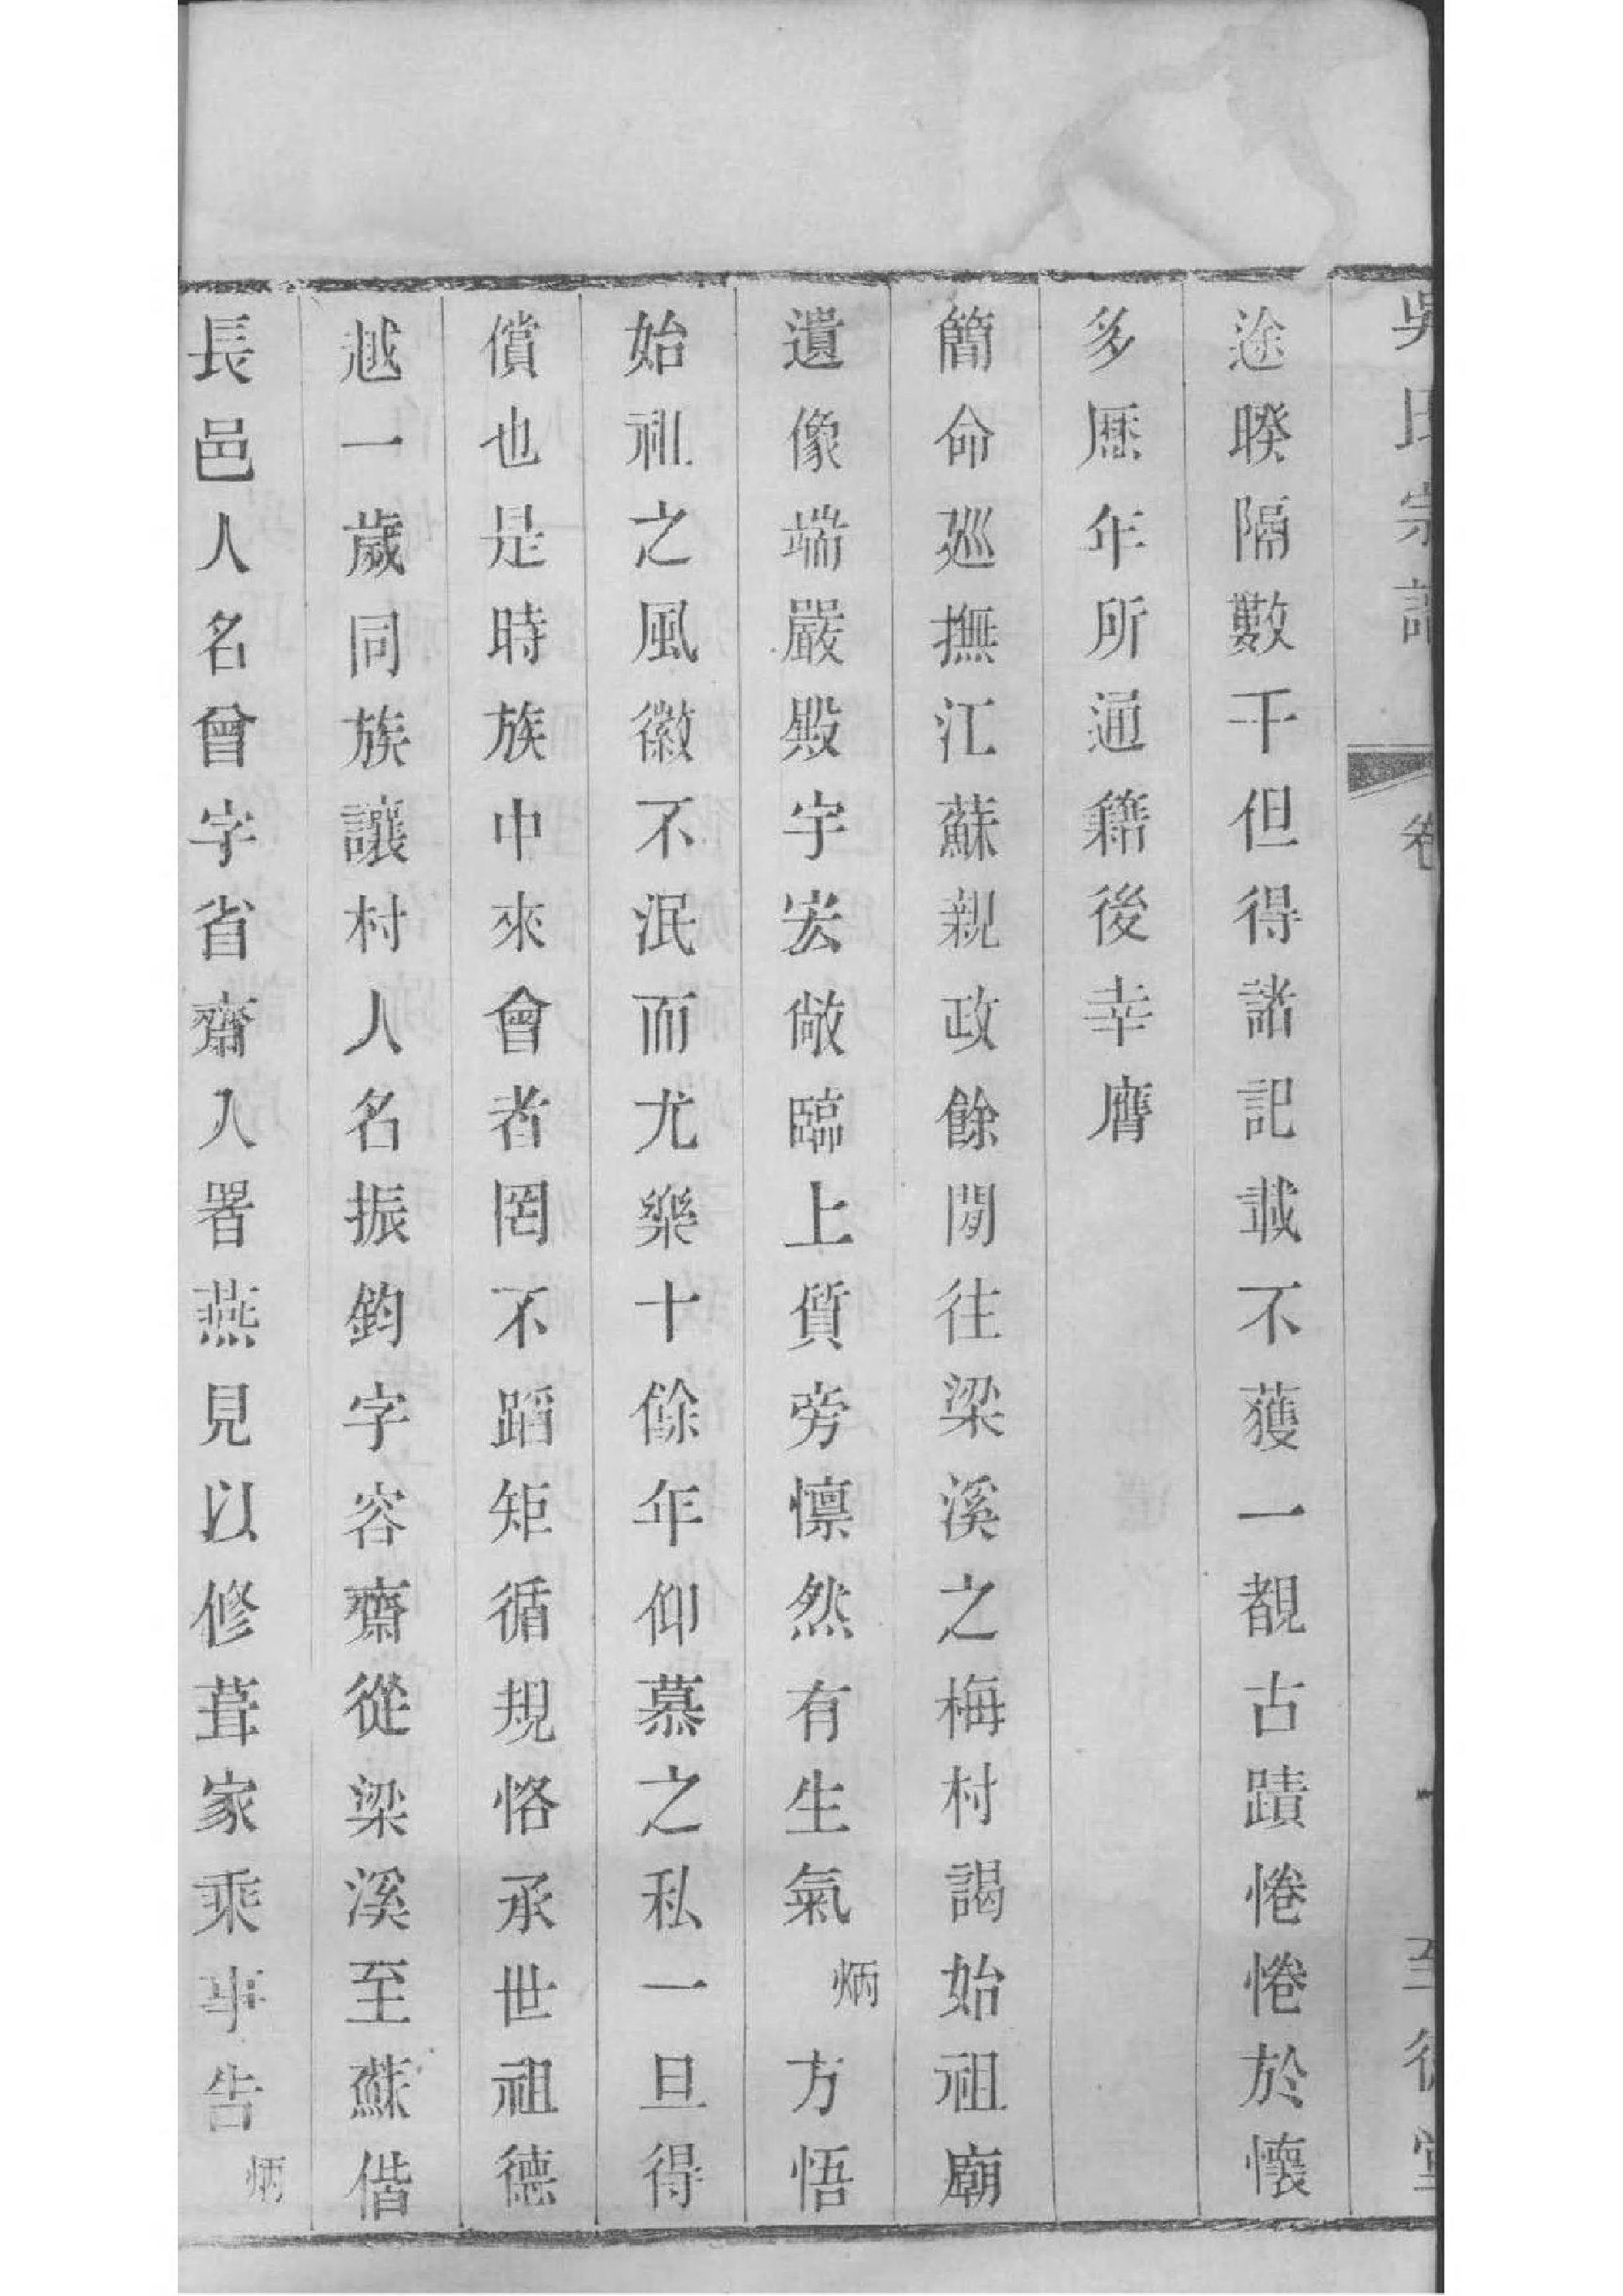 吳氏宗譜 卷 一 至德堂
途暌隔數千但得諸記載不獲一覩古蹟惓惓於懷
多歷年所通籍後幸膺
簡命廵撫江蘇親政餘閒往梁溪之梅村謁始祖廟
遺像端嚴殿宇宏敞臨上質旁懍然有生氣炳方悟
始祖之風徽不泯而尤樂十餘年仰慕之私一旦得
償也是時族中來會者罔不蹈矩循規恪承世祖德
越一歲同族讓村人名振鈞字容齋從梁溪至蘇偕
長邑人名曾字省齋入署燕見以修葺家乘事告炳